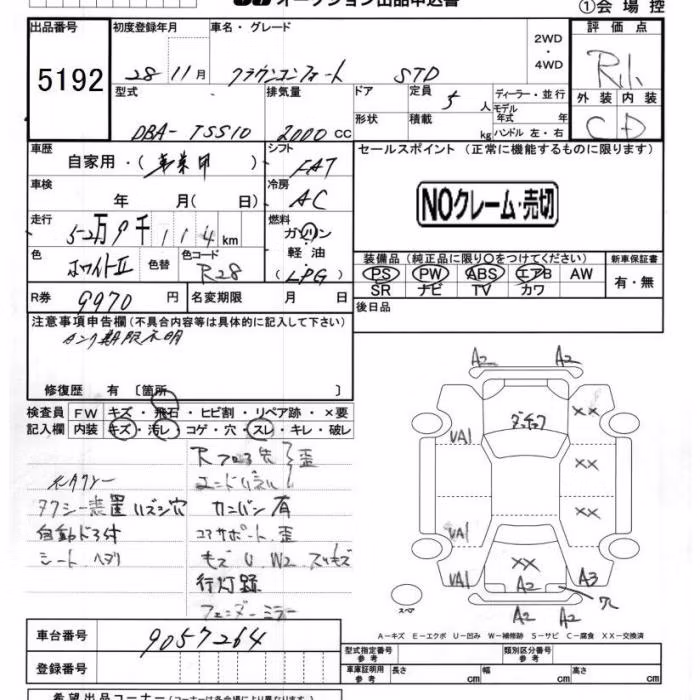 オークション出品申込書
①会場控
出品番号 初度登録年月 車名・グレード 2WD・4WD 評価点
5192 28 11月 クラウンコンフォート STD
型式 排気量 ドア 定員 5人 ディーラー・並行 外装 内装
モデル年式 年
DBA-TSS10 2000cc 形状 積載 kg ハンドル 左・右 C D
車歴 シフト セールスポイント (正常に機能するものに限ります)
自家用・(事業用) FAT
車検 冷房 NOクレーム・売切
年 月( 日) AC
走行 燃料
52万9千114km ガソリン・軽油(LPG)
色 色替 色コード 装備品(純正品に限り○をつけてください) 新車保証書
ホワイトII R28 PS PW ABS エアB AW 有・無
SR ナビ TV カワ
R券 9970円 名変期限 月 日 後日品
注意事項申告欄(不具合内容等は具体的に記入して下さい)
タンク期限不明
修復歴 有 〔箇所 〕
検査員 FW キズ・飛石・ヒビ割・リペア跡・×要
記入欄 内装 キズ・汚レ・コゲ・穴・スレ・キレ・破レ
元タクシー
タクシー装置ハズシ穴
自動ドア付
シート ヘタリ
歪
カンバン有
コアサポート 歪
キズ U W2 スリキズ
行灯跡
フェンダーミラー
A2 A2
XX
VA1 XX
XX
VA1
VA1 XX A2 A3
穴
A2 A2
スペア
A-キズ E-エクボ U-凹み W-補修跡 S-サビ C-腐食 XX-交換済
車台番号 9057264
型式指定番号 参考 類別区分番号 参考
登録番号 車庫証明用 参考 長さ cm 幅 cm 高さ cm
希望出品コーナー(コーナーは各会場により異なります)